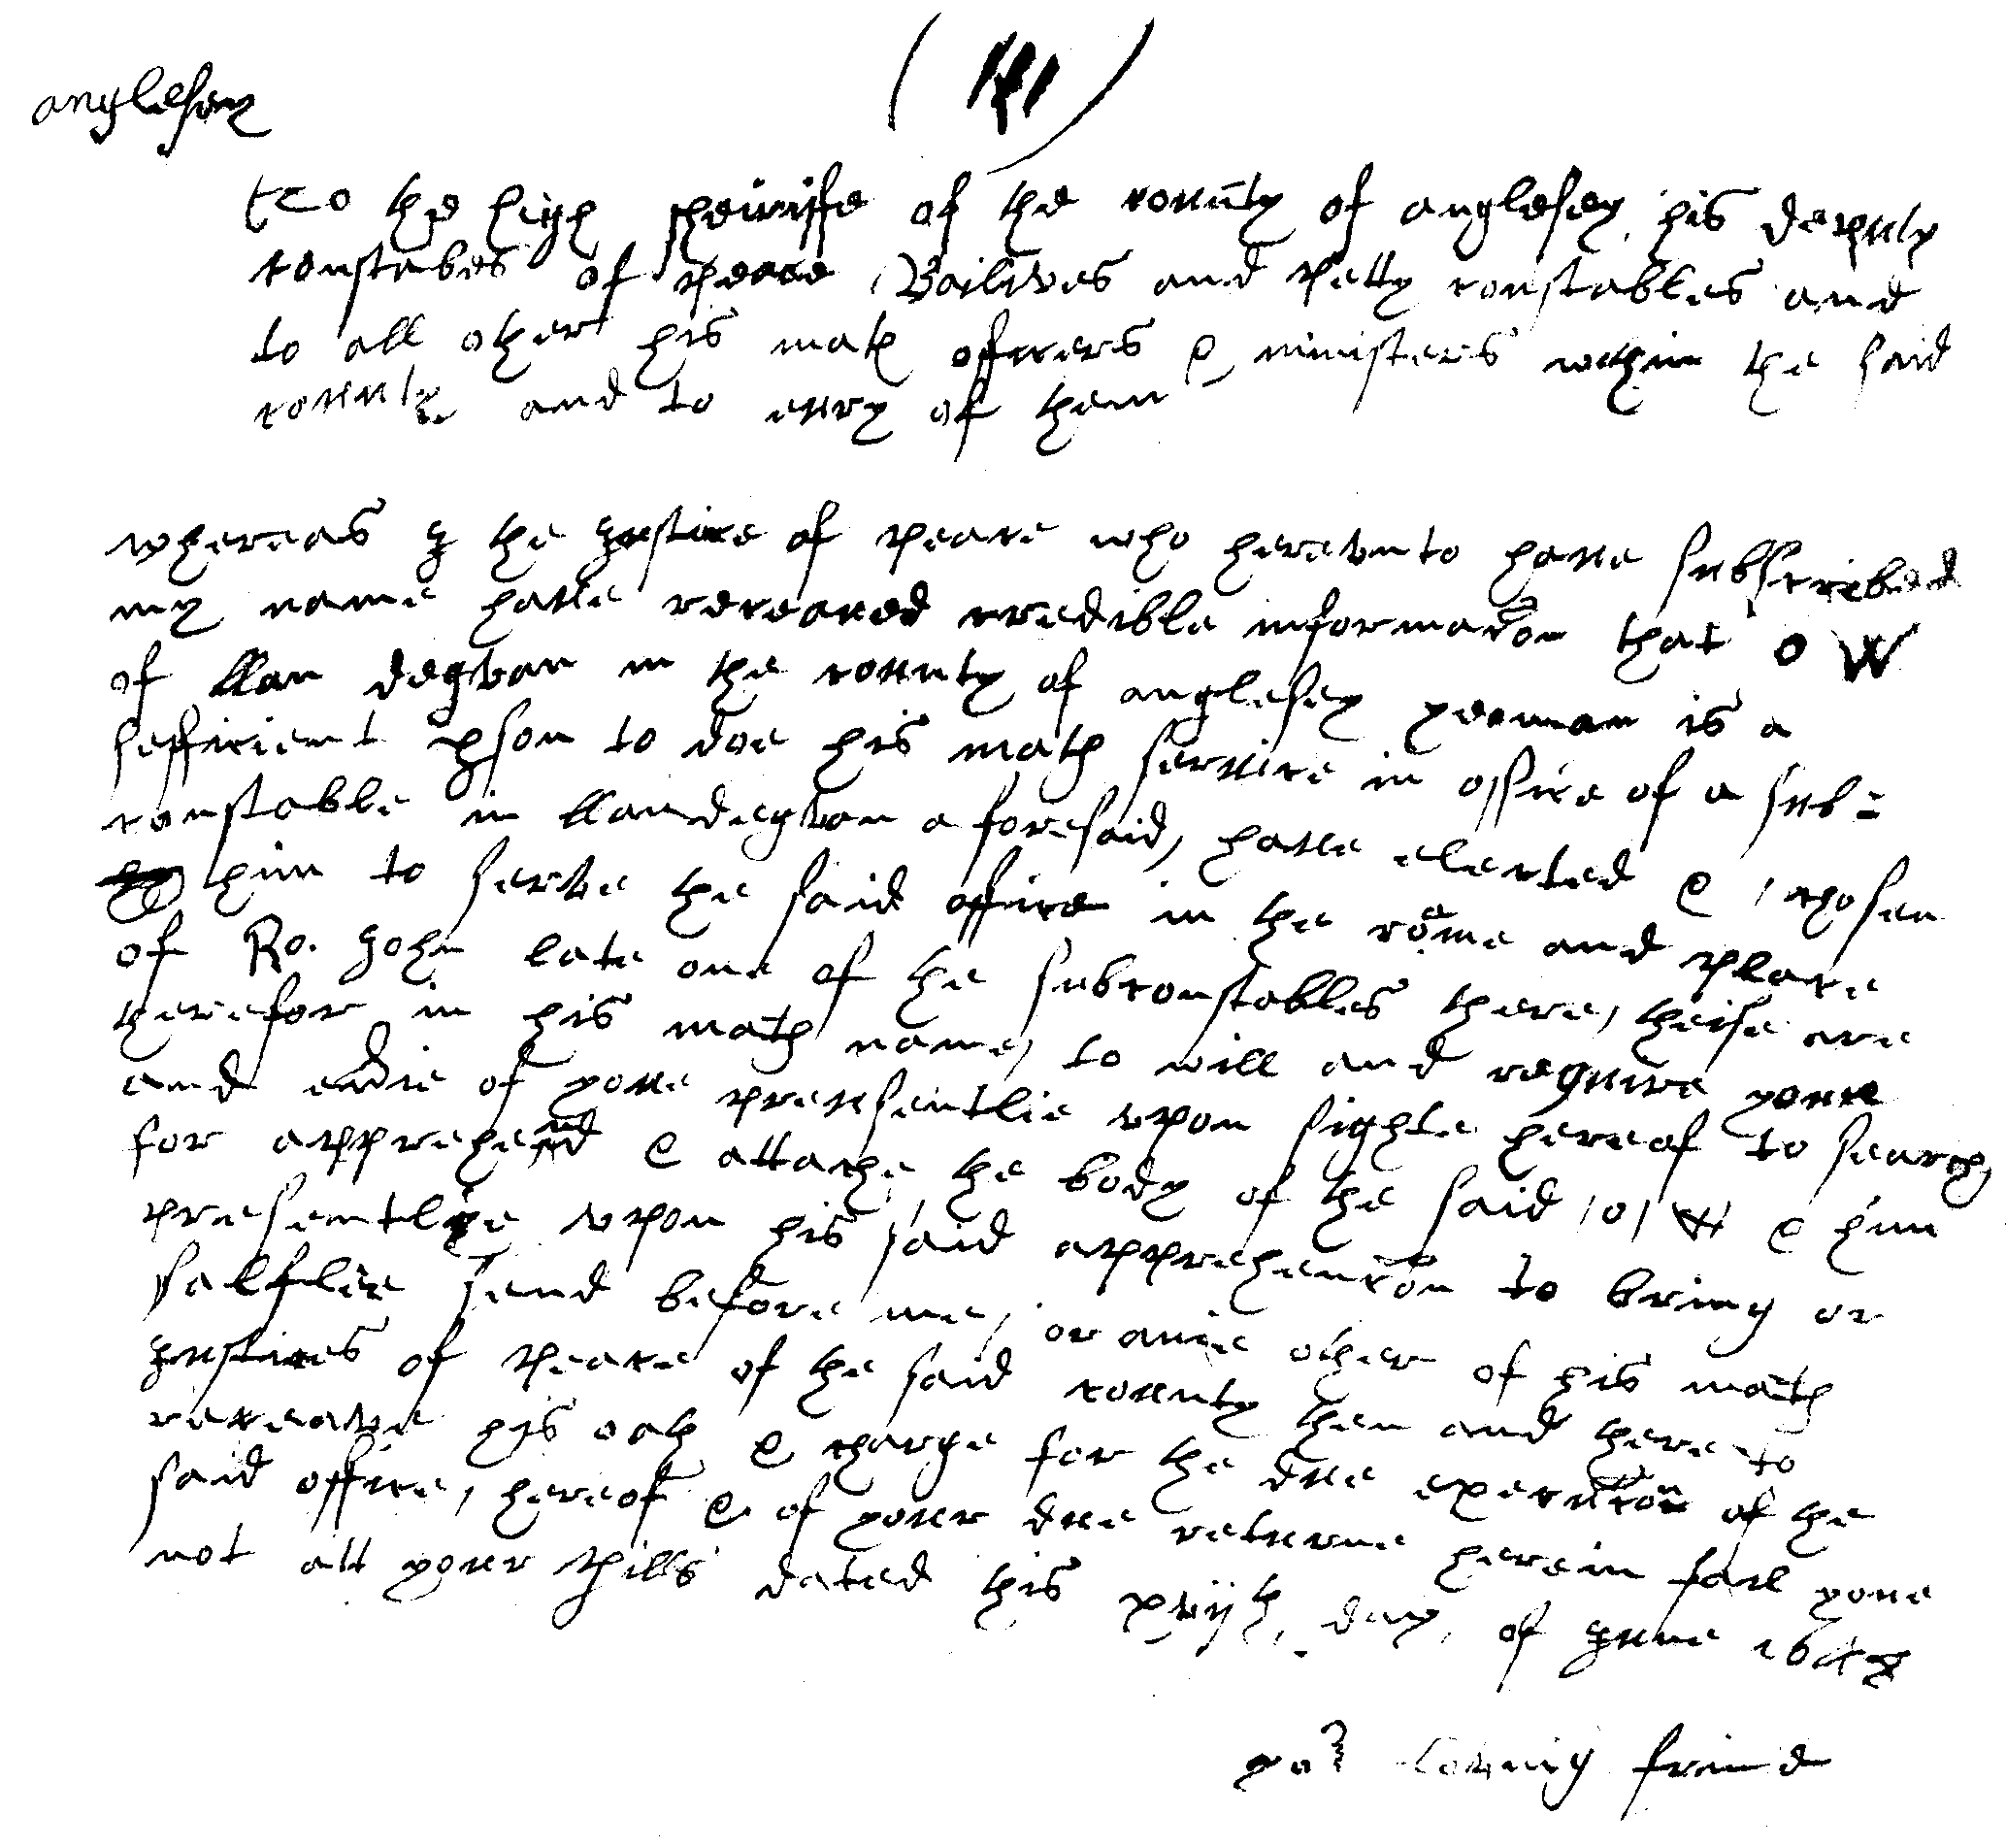 anglesey
to the high sheiriffe of the County of anglesey his deputy
constabes of peace Bailives and petty constables and
to all other his matis officers & ministers within the said
County and to eury of them
whereas J the Justice of peace who herevnto haue subscribed
my name haue receaued credible informacon that O W
of llan degvan in the county of anglesey yeoman is a
sefficient pson to doe his matis seruice in office of a sub=
constable in llandegvan aforesaid, haue elected & chosen
him to serve the said office in the rome and place
of Ro. John late one of the subconstables there, theise are
therefor in his matis name, to will and require youe
and eūie of youe preusentlie vpon sighte hereof to search
for apprehend & attache, the body of the said /O/ W & him
presentlye vpon his said apprehencon to bring or
salflie send before me, or anie other of his matis
Justices of peace of the said county then and there to
receave his oath & charge for the due execucon of the
said office, hereof & of your due returne herein fail youe
not att your pills dated this xvijth, day, of June 1648
yor loving frind